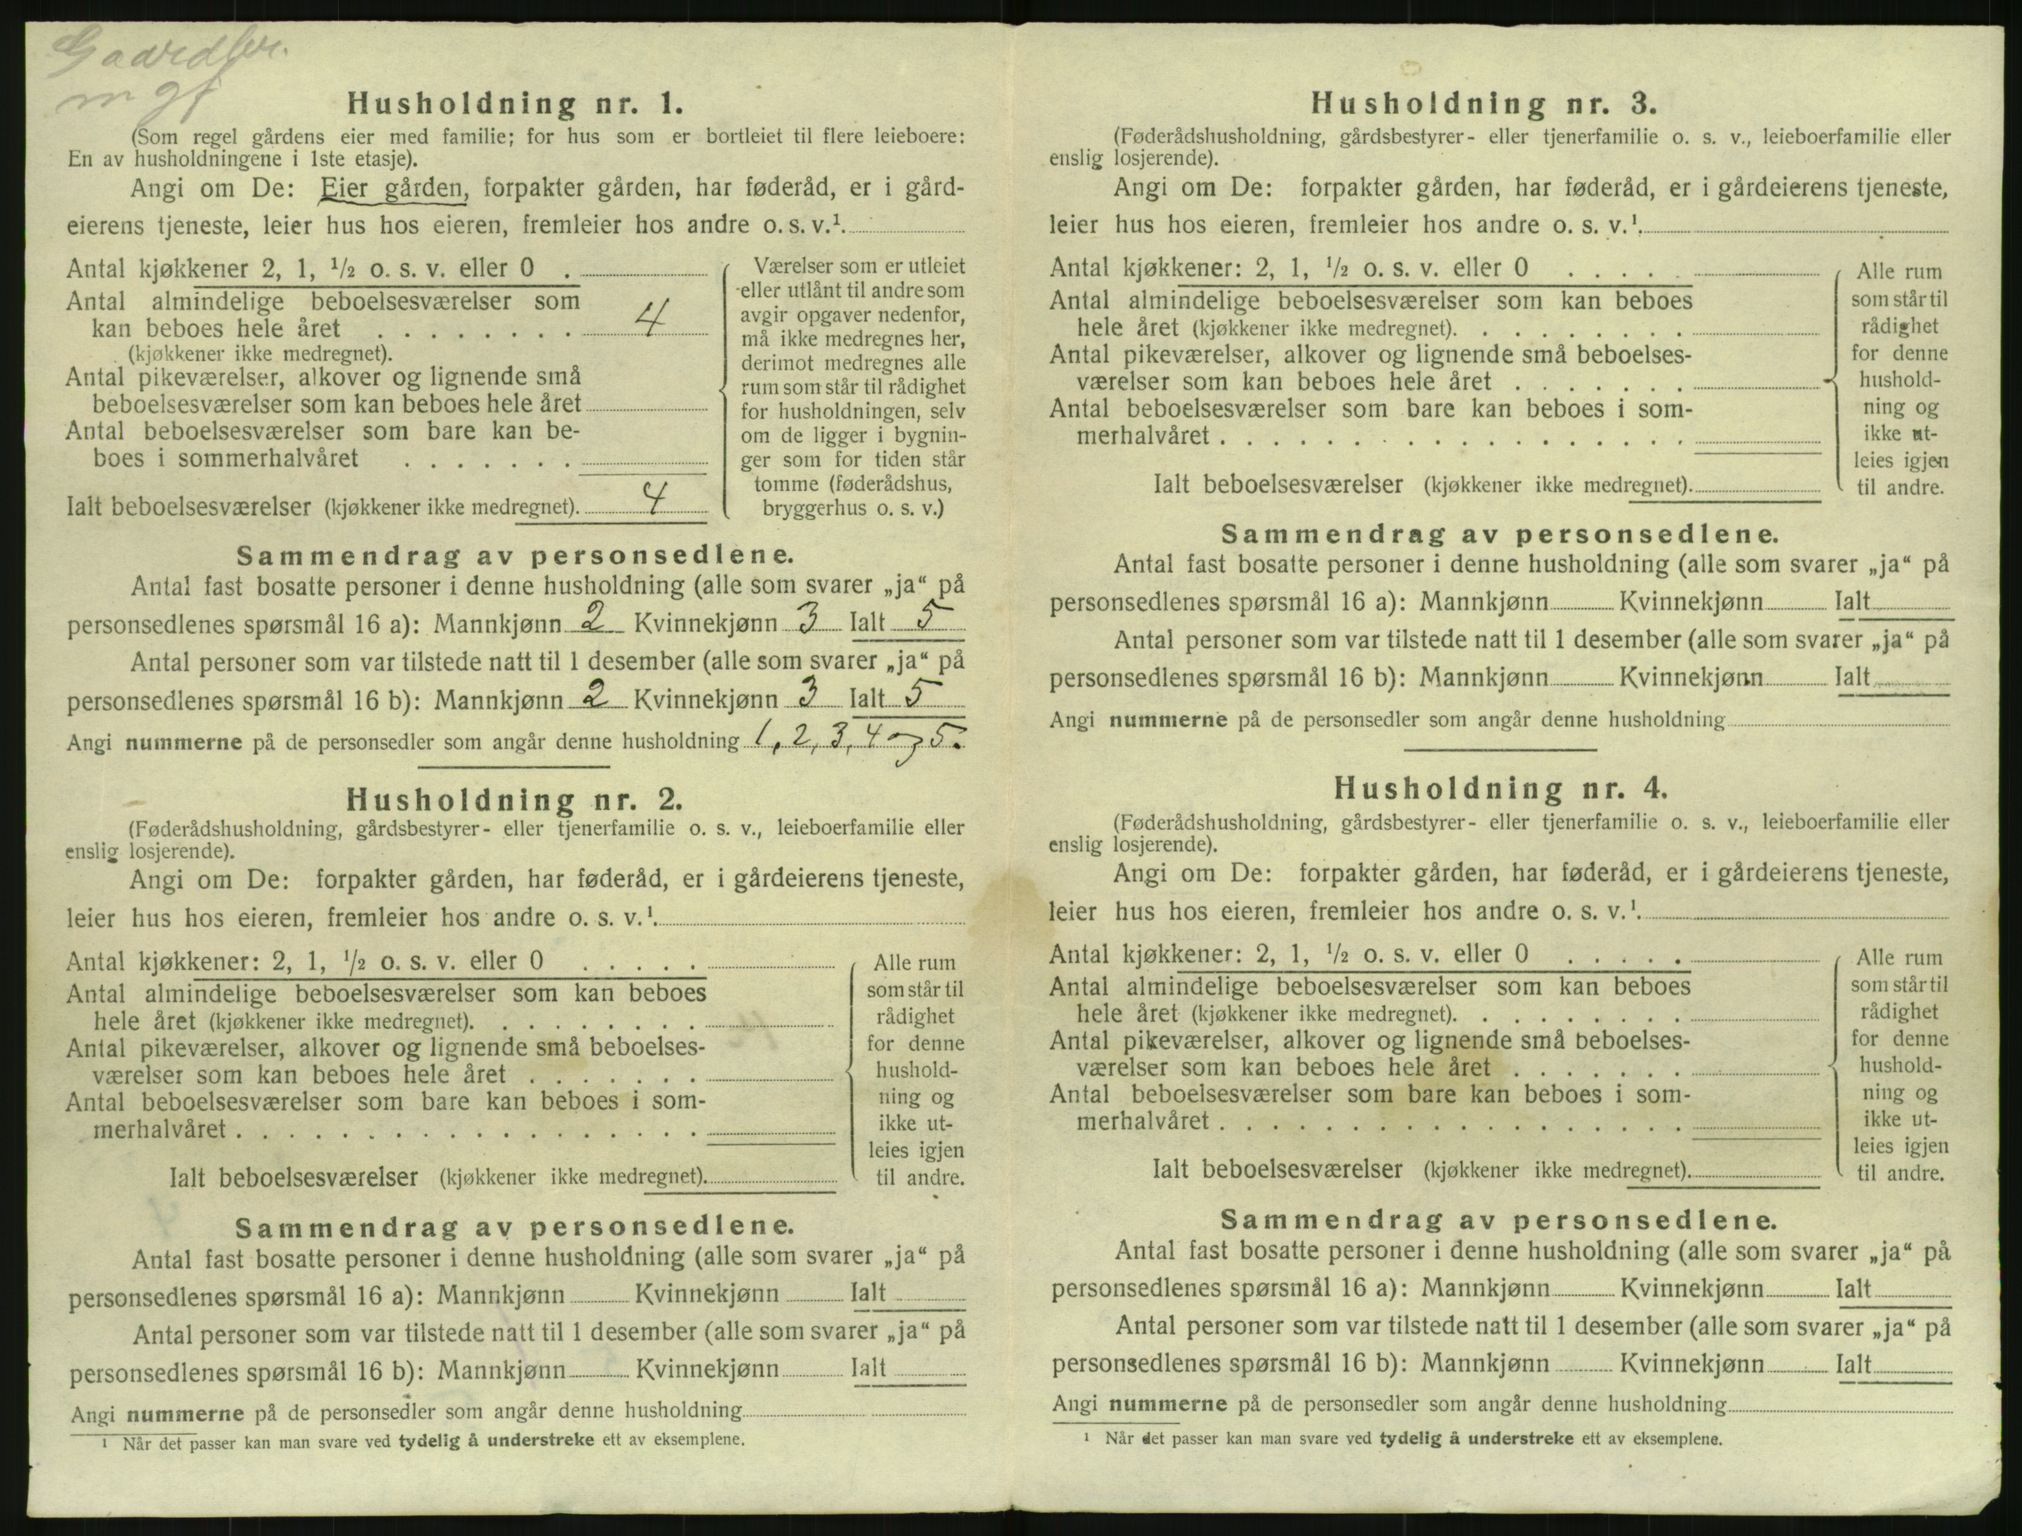 Gaardbr.
m gf
Husholdning nr. 1.
(Som regel gårdens eier med familie; for hus som er bortleiet til flere leieboere:
En av husholdningene i 1ste etasje).
Angi om De: Eier gården, forpakter gården, har føderåd, er i gård-
eierens tjeneste, leier hus hos eieren, fremleier hos andre o. s. v.¹.
Antal kjøkkener 2, 1, ½ o. s. v. eller 0 .
Antal almindelige beboelsesværelser som
kan beboes hele året . . . . . . . . 4
(kjøkkener ikke medregnet).
Antal pikeværelser, alkover og lignende små
beboelsesværelser som kan beboes hele året
Antal beboelsesværelser som bare kan be-
boes i sommerhalvåret . . . . . . .
Ialt beboelsesværelser (kjøkkener ikke medregnet). 4
Værelser som er utleiet
eller utlånt til andre som
avgir opgaver nedenfor,
må ikke medregnes her,
derimot medregnes alle
rum som står til rådighet
for husholdningen, selv
om de ligger i bygnin-
ger som for tiden står
tomme (føderådshus,
bryggerhus o. s. v.)
Sammendrag av personsedlene.
Antal fast bosatte personer i denne husholdning (alle som svarer „ja“ på
personsedlenes spørsmål 16 a): Mannkjønn 2 Kvinnekjønn 3 Ialt 5
Antal personer som var tilstede natt til 1 desember (alle som svarer „ja“ på
personsedlenes spørsmål 16 b): Mannkjønn 2 Kvinnekjønn 3 Ialt 5
Angi nummerne på de personsedler som angår denne husholdning 1, 2, 3, 4 og 5.
Husholdning nr. 2.
(Føderådshusholdning, gårdsbestyrer- eller tjenerfamilie o. s. v., leieboerfamilie eller
enslig losjerende).
Angi om De: forpakter gården, har føderåd, er i gårdeierens tjeneste,
leier hus hos eieren, fremleier hos andre o. s. v.¹.
Antal kjøkkener: 2, 1, ½ o. s. v. eller 0 . . . . .
Antal almindelige beboelsesværelser som kan beboes
hele året (kjøkkener ikke medregnet). . . . . . . . .
Antal pikeværelser, alkover og lignende små beboelses-
værelser som kan beboes hele året . . . . . . .
Antal beboelsesværelser som bare kan beboes i som-
merhalvåret . . . . . . . . . . . . . . . . . .
Ialt beboelsesværelser (kjøkkener ikke medregnet).
Alle rum
som står til
rådighet
for denne
hushold-
ning og
ikke ut-
leies igjen
til andre.
Sammendrag av personsedlene.
Antal fast bosatte personer i denne husholdning (alle som svarer „ja“ på
personsedlenes spørsmål 16 a): Mannkjønn Kvinnekjønn Ialt
Antal personer som var tilstede natt til 1 desember (alle som svarer „ja“ på
personsedlenes spørsmål 16 b): Mannkjønn Kvinnekjønn Ialt
Angi nummerne på de personsedler som angår denne husholdning
¹ Når det passer kan man svare ved tydelig å understreke ett av eksemplene.
Husholdning nr. 3.
(Føderådshusholdning, gårdsbestyrer- eller tjenerfamilie o. s. v., leieboerfamilie eller
enslig losjerende).
Angi om De: forpakter gården, har føderåd, er i gårdeierens tjeneste,
leier hus hos eieren, fremleier hos andre o. s. v.¹.
Antal kjøkkener: 2, 1, ½ o. s. v. eller 0 . . . . .
Antal almindelige beboelsesværelser som kan beboes
hele året (kjøkkener ikke medregnet). . . . . . . . .
Antal pikeværelser, alkover og lignende små beboelses-
værelser som kan beboes hele året . . . . . . .
Antal beboelsesværelser som bare kan beboes i som-
merhalvåret . . . . . . . . . . . . . . . . . .
Ialt beboelsesværelser (kjøkkener ikke medregnet).
Alle rum
som står til
rådighet
for denne
hushold-
ning og
ikke ut-
leies igjen
til andre.
Sammendrag av personsedlene.
Antal fast bosatte personer i denne husholdning (alle som svarer „ja“ på
personsedlenes spørsmål 16 a): Mannkjønn Kvinnekjønn Ialt
Antal personer som var tilstede natt til 1 desember (alle som svarer „ja“ på
personsedlenes spørsmål 16 b): Mannkjønn Kvinnekjønn Ialt
Angi nummerne på de personsedler som angår denne husholdning
Husholdning nr. 4.
(Føderådshusholdning, gårdsbestyrer- eller tjenerfamilie o. s. v., leieboerfamilie eller
enslig losjerende).
Angi om De: forpakter gården, har føderåd, er i gårdeierens tjeneste,
leier hus hos eieren, fremleier hos andre o. s. v.¹.
Antal kjøkkener: 2, 1, ½ o. s. v. eller 0 . . . . .
Antal almindelige beboelsesværelser som kan beboes
hele året (kjøkkener ikke medregnet). . . . . . . . .
Antal pikeværelser, alkover og lignende små beboelses-
værelser som kan beboes hele året . . . . . . .
Antal beboelsesværelser som bare kan beboes i som-
merhalvåret . . . . . . . . . . . . . . . . . .
Ialt beboelsesværelser (kjøkkener ikke medregnet).
Alle rum
som står til
rådighet
for denne
hushold-
ning og
ikke ut-
leies igjen
til andre.
Sammendrag av personsedlene.
Antal fast bosatte personer i denne husholdning (alle som svarer „ja“ på
personsedlenes spørsmål 16 a): Mannkjønn Kvinnekjønn Ialt
Antal personer som var tilstede natt til 1 desember (alle som svarer „ja“ på
personsedlenes spørsmål 16 b): Mannkjønn Kvinnekjønn Ialt
Angi nummerne på de personsedler som angår denne husholdning
¹ Når det passer kan man svare ved tydelig å understreke ett av eksemplene.